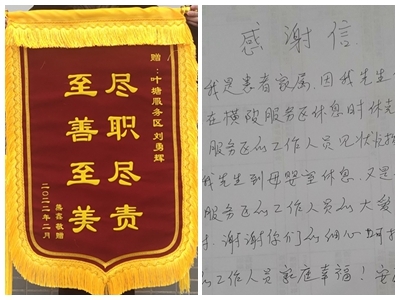 赠：叶塘服务区 刘勇辉
尽职尽责
至善至美
敬赠
二〇二二年二月
感谢信
我是患者家属，因我先生
在横陂服务区休息时休克
服务区的工作人员见状
我先生到母婴室休息，又是
服务区的工作人员的大爱
谢谢你们的细心
工作人员家庭幸福！